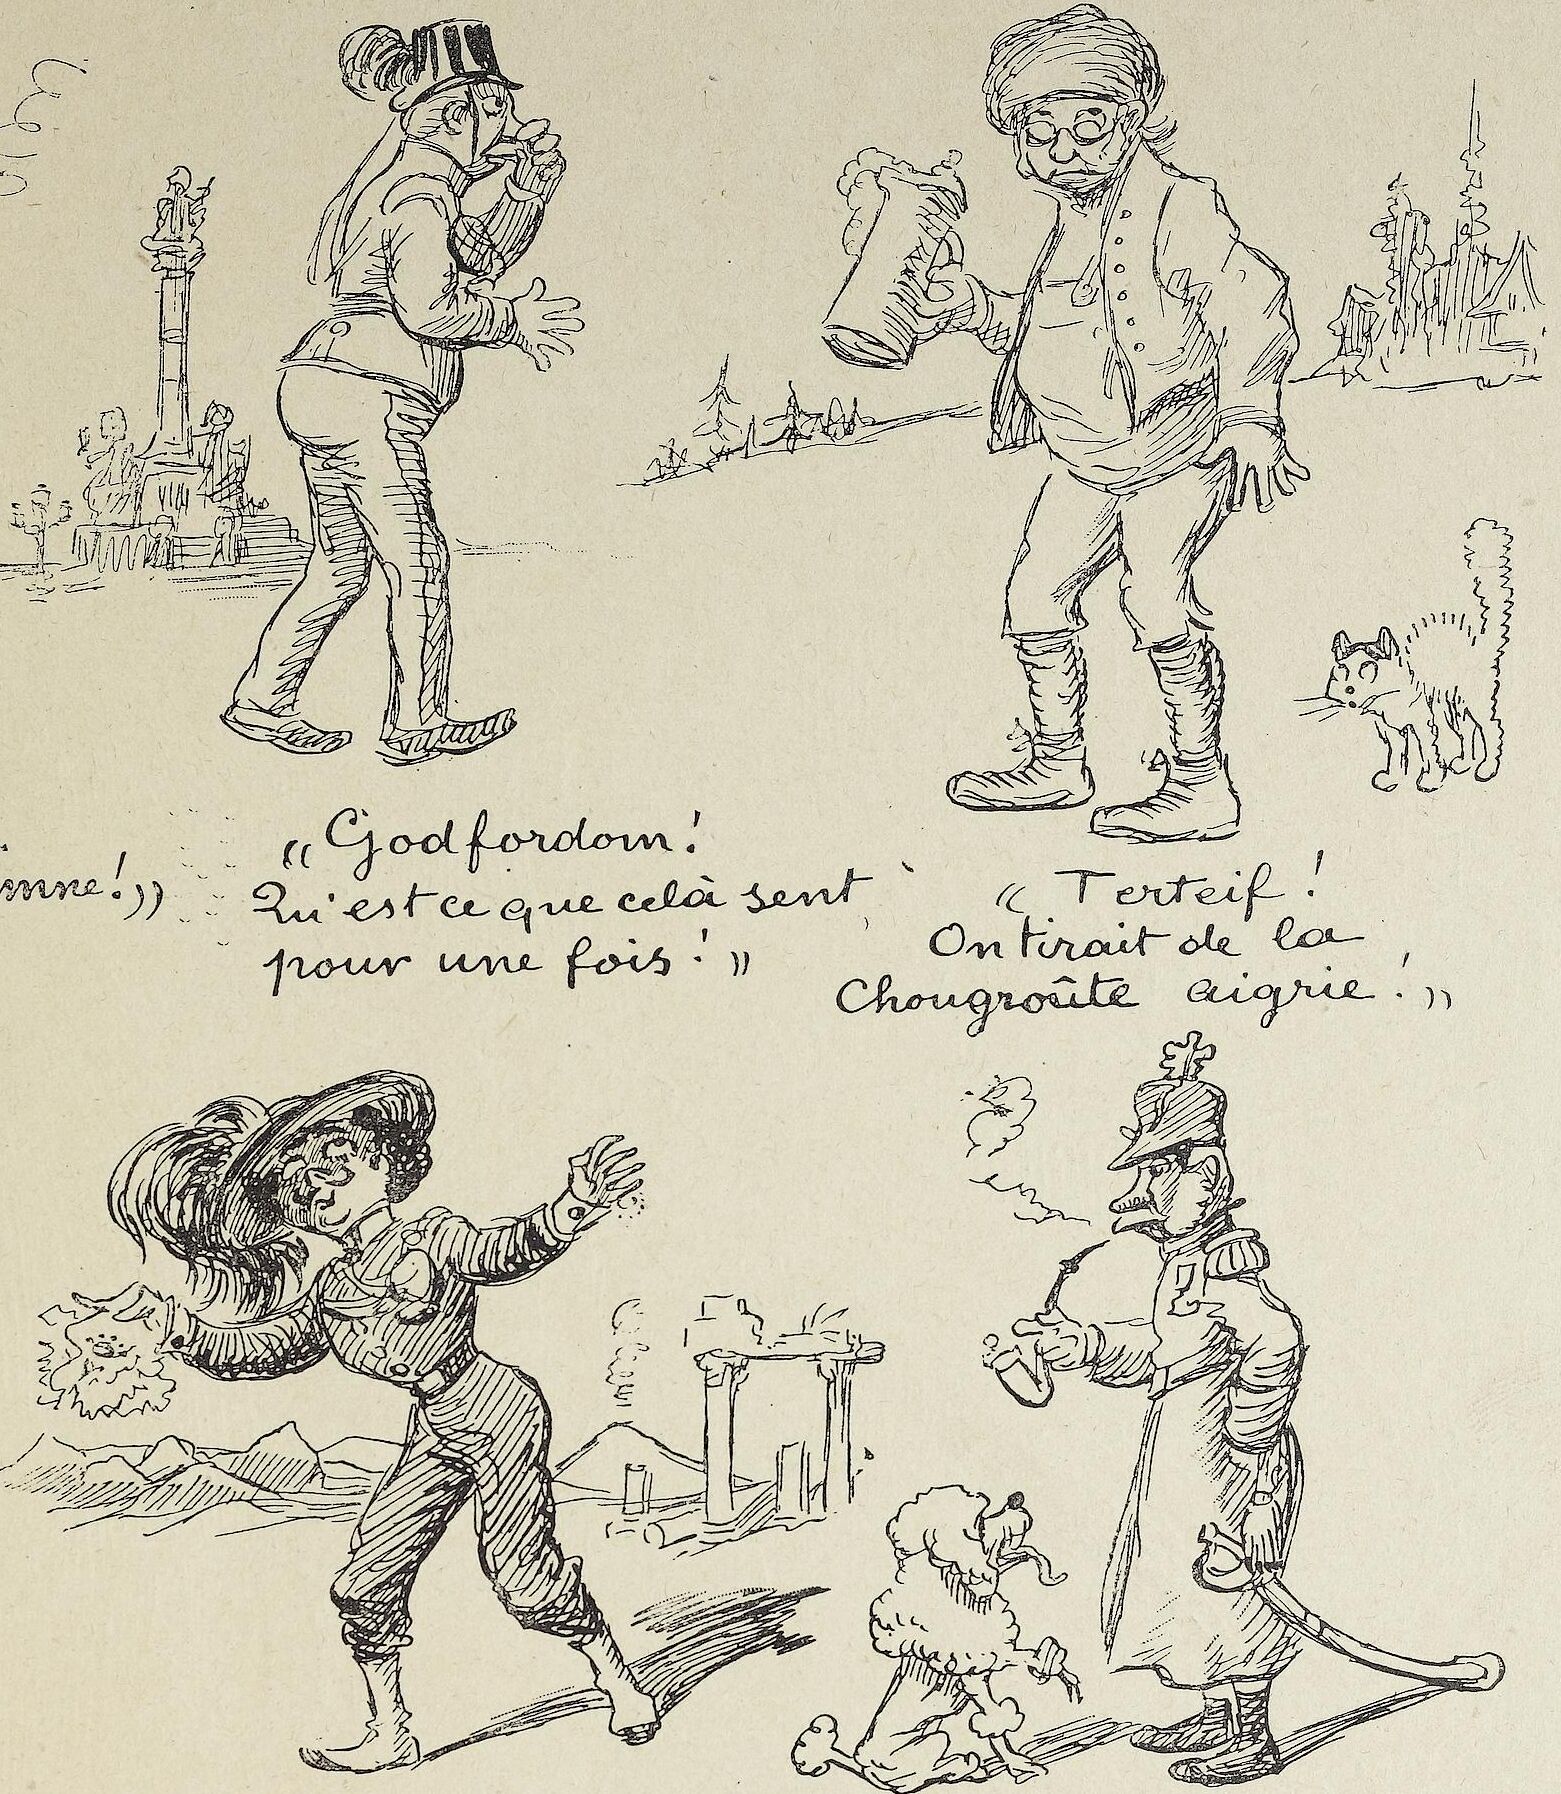 mne!,,
,,Godfordom!
Qu'est ce que celà sent
pour une fois!,,
,, Terteif!
On tirait de la
Chougroûte aigrie!,,